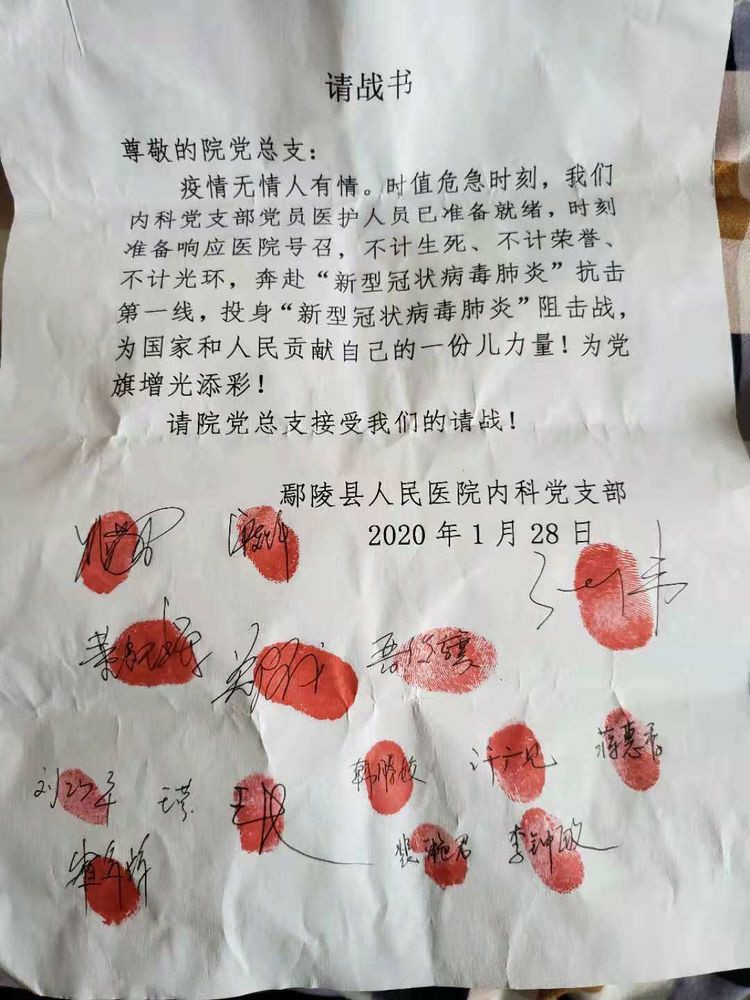 请战书
尊敬的院党总支：
疫情无情人有情。时值危急时刻，我们
内科党支部党员医护人员已准备就绪，时刻
准备响应医院号召，不计生死、不计荣誉、
不计光环，奔赴“新型冠状病毒肺炎”抗击
第一线，投身“新型冠状病毒肺炎”阻击战，
为国家和人民贡献自己的一份儿力量！为党
旗增光添彩！
请院党总支接受我们的请战！
鄢陵县人民医院内科党支部
2020 年 1 月 28 日
韩腾敏
蒋惠君
李钟敏